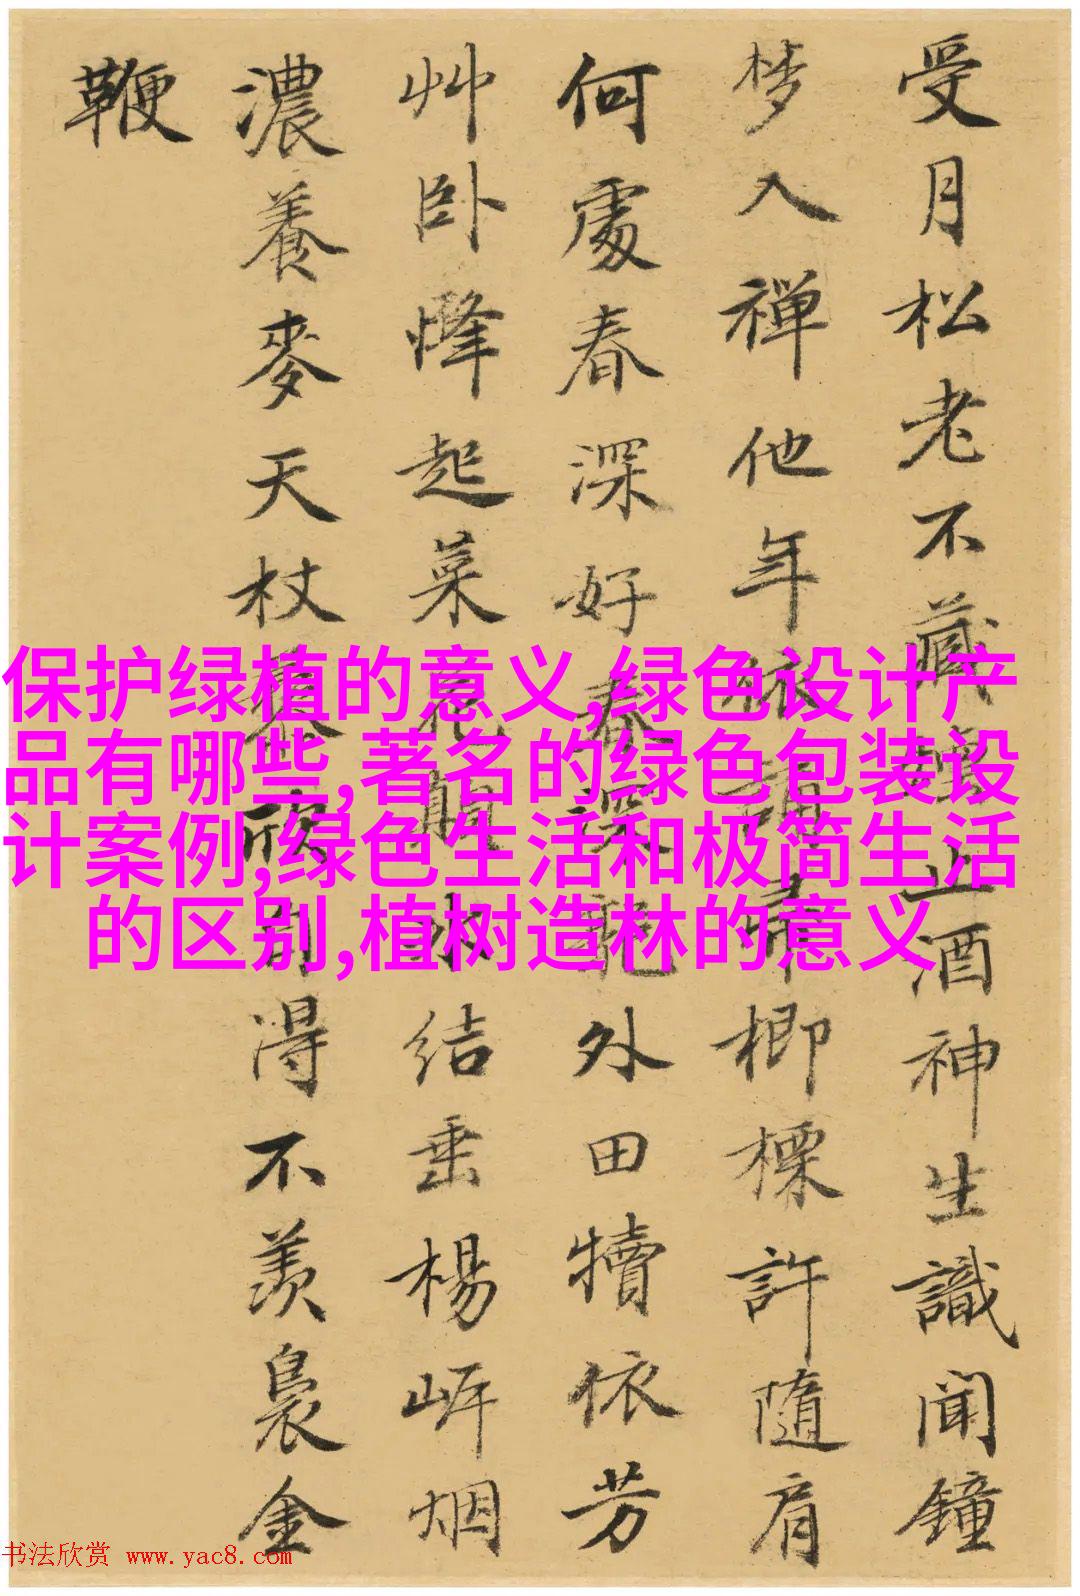 受月松老不藏 止酒神生識聞鐘
梦入禅他年依誦 柳栗許隨肩
何處春深好春深 外田犢依芳
艸卧烽起菜花 水结垂楊岍烟
濃養麥天杖藜欣 得不羨裊金
鞭
保护绿植的意义,绿色设计产
品有哪些,著名的绿色包装设
计案例,绿色生活和极简生活
的区别,植树造林的意义
书法欣赏 www.yac8.com